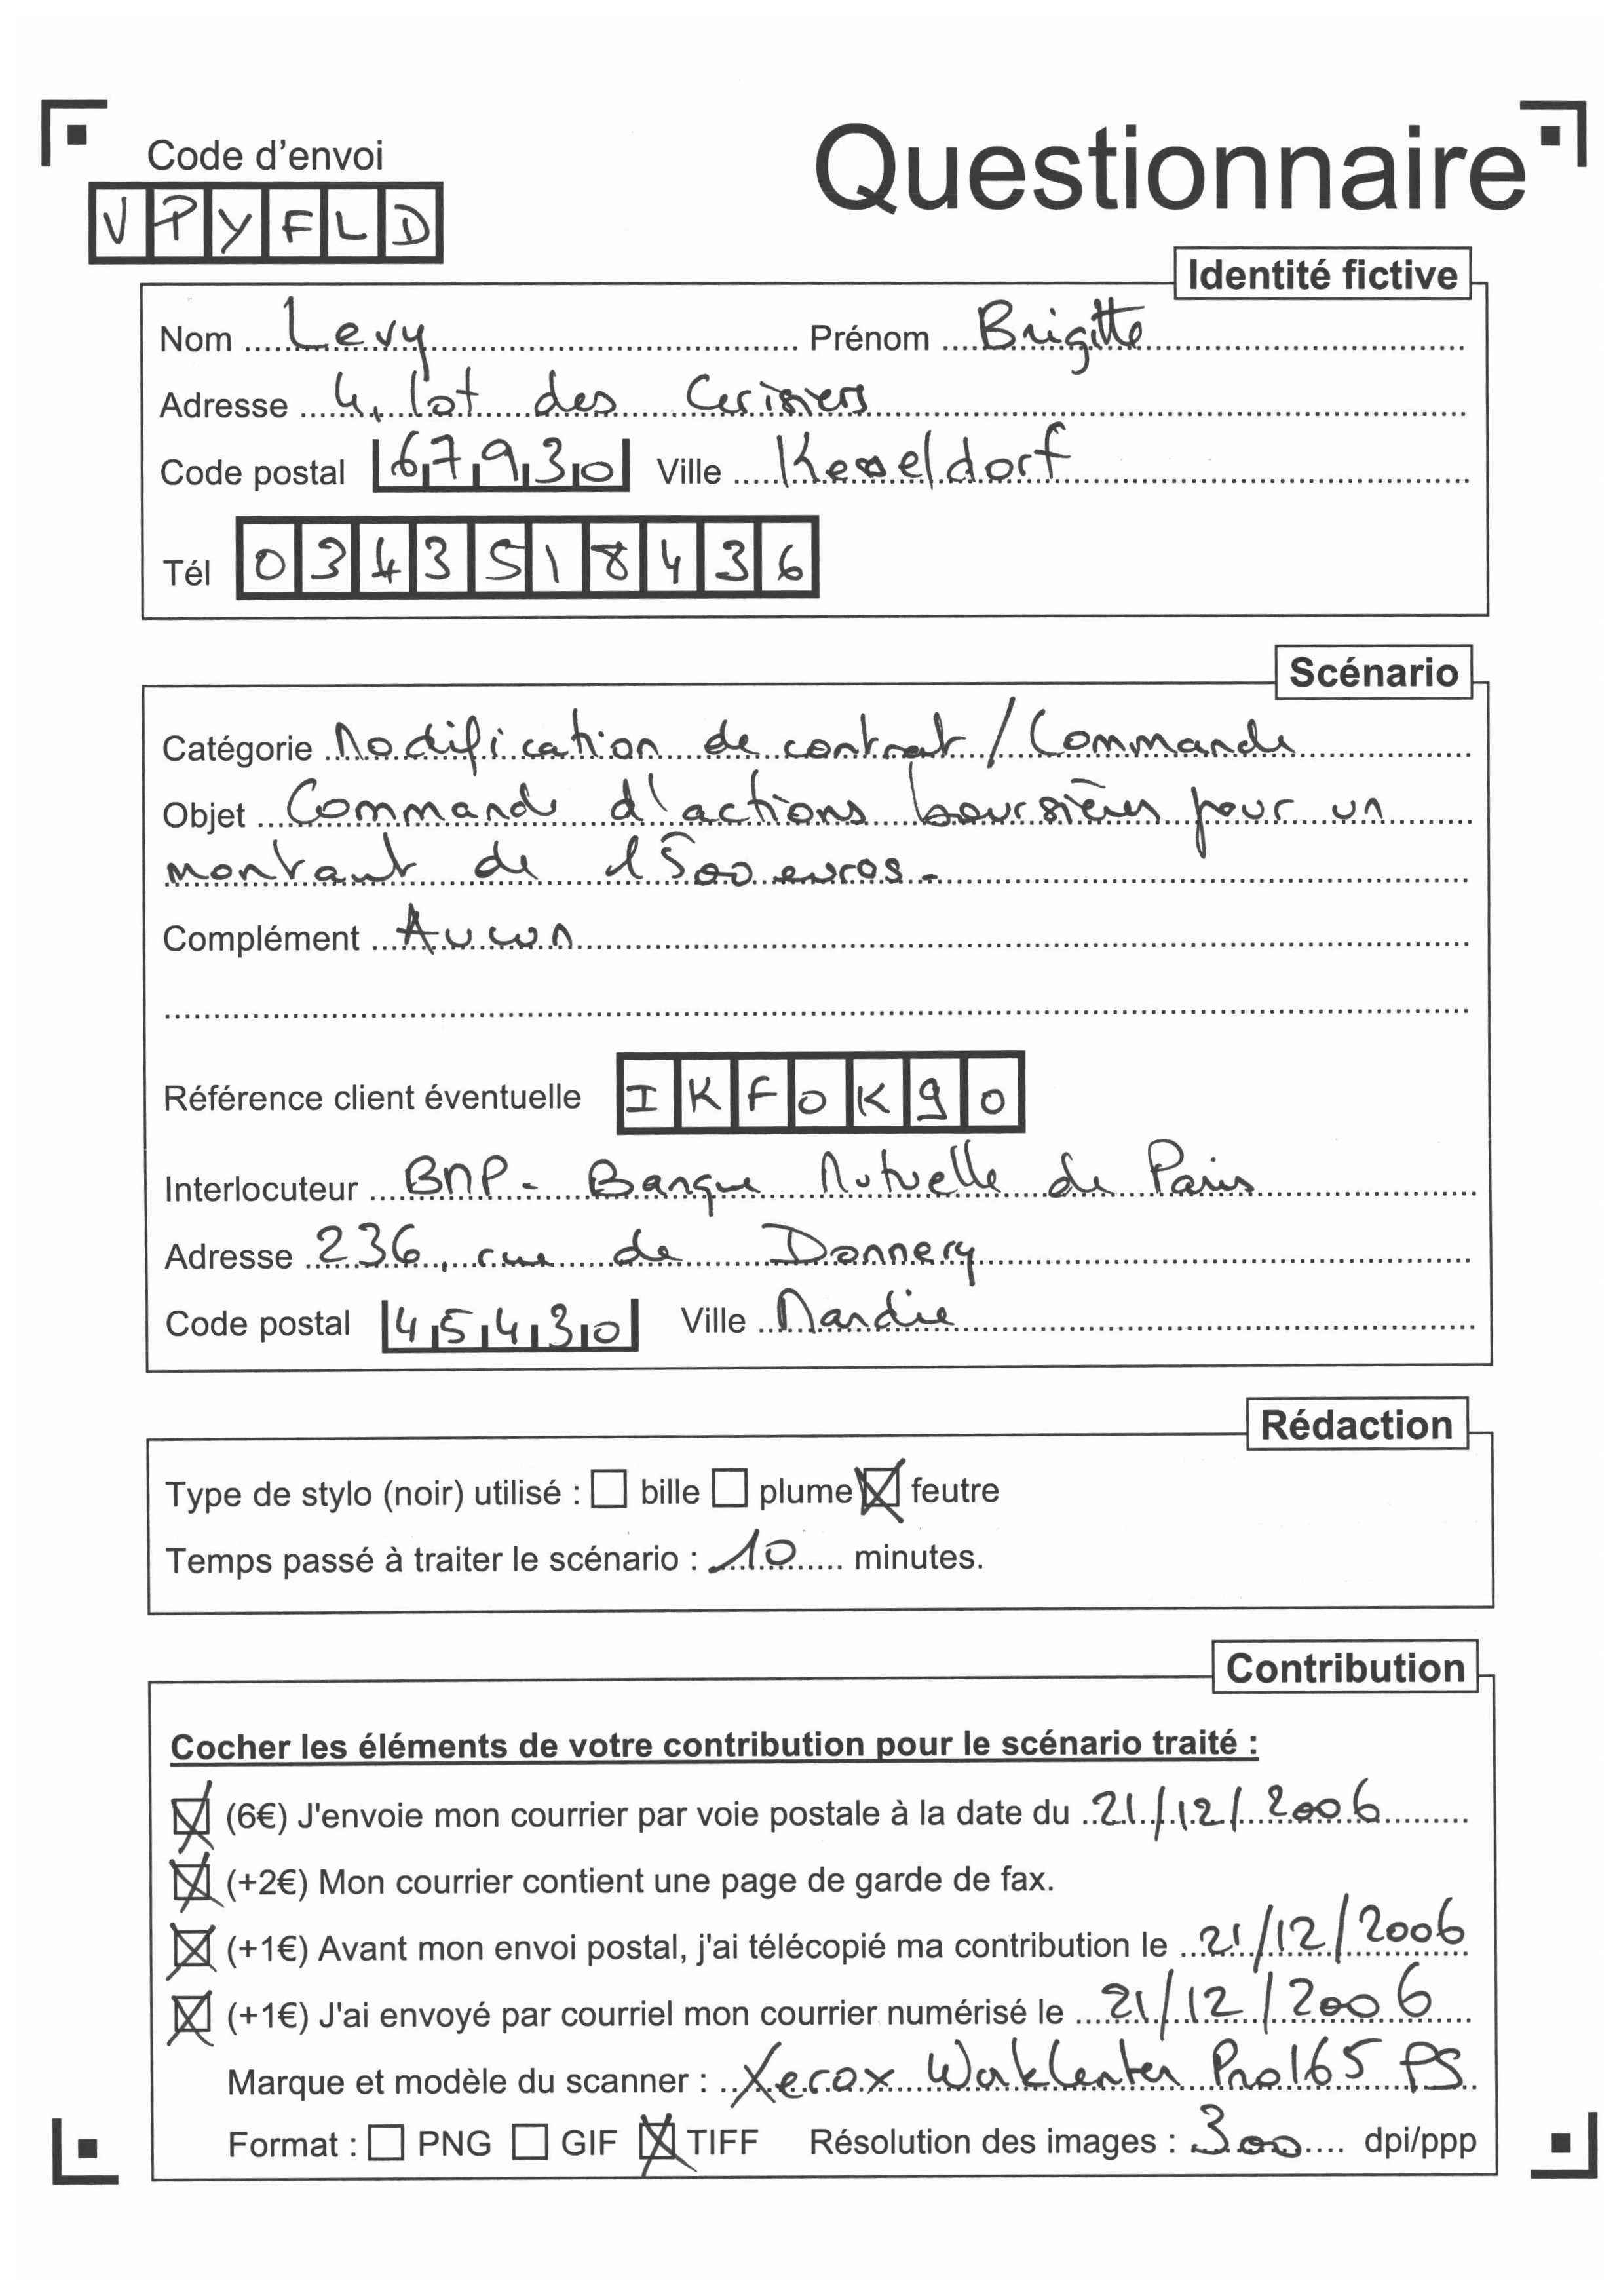 Code d'envoi
Questionnaire
VPYFLD
Identité fictive
Nom Levy Prénom Brigitte
Adresse 4, lot des Cerisiers
Code postal 67930 Ville Kesseldorf
Tél 0343518436
Scénario
Catégorie Modification de contrat / Commande
Objet Commande d'actions boursières pour un
montant de 1500 euros.
Complément Aucun
Référence client éventuelle IKFOK90
Interlocuteur BNP - Banque Mutuelle de Paris
Adresse 236, rue de Donnery
Code postal 45430 Ville Mardie
Rédaction
Type de stylo (noir) utilisé : bille plume feutre
Temps passé à traiter le scénario : 10 minutes.
Contribution
Cocher les éléments de votre contribution pour le scénario traité :
(6€) J'envoie mon courrier par voie postale à la date du 21/12/2006
(+2€) Mon courrier contient une page de garde de fax.
(+1€) Avant mon envoi postal, j'ai télécopié ma contribution le 21/12/2006
(+1€) J'ai envoyé par courriel mon courrier numérisé le 21/12/2006
Marque et modèle du scanner : Xerox WorkCenter Pro165 PS
Format : PNG GIF TIFF Résolution des images : 300 dpi/ppp